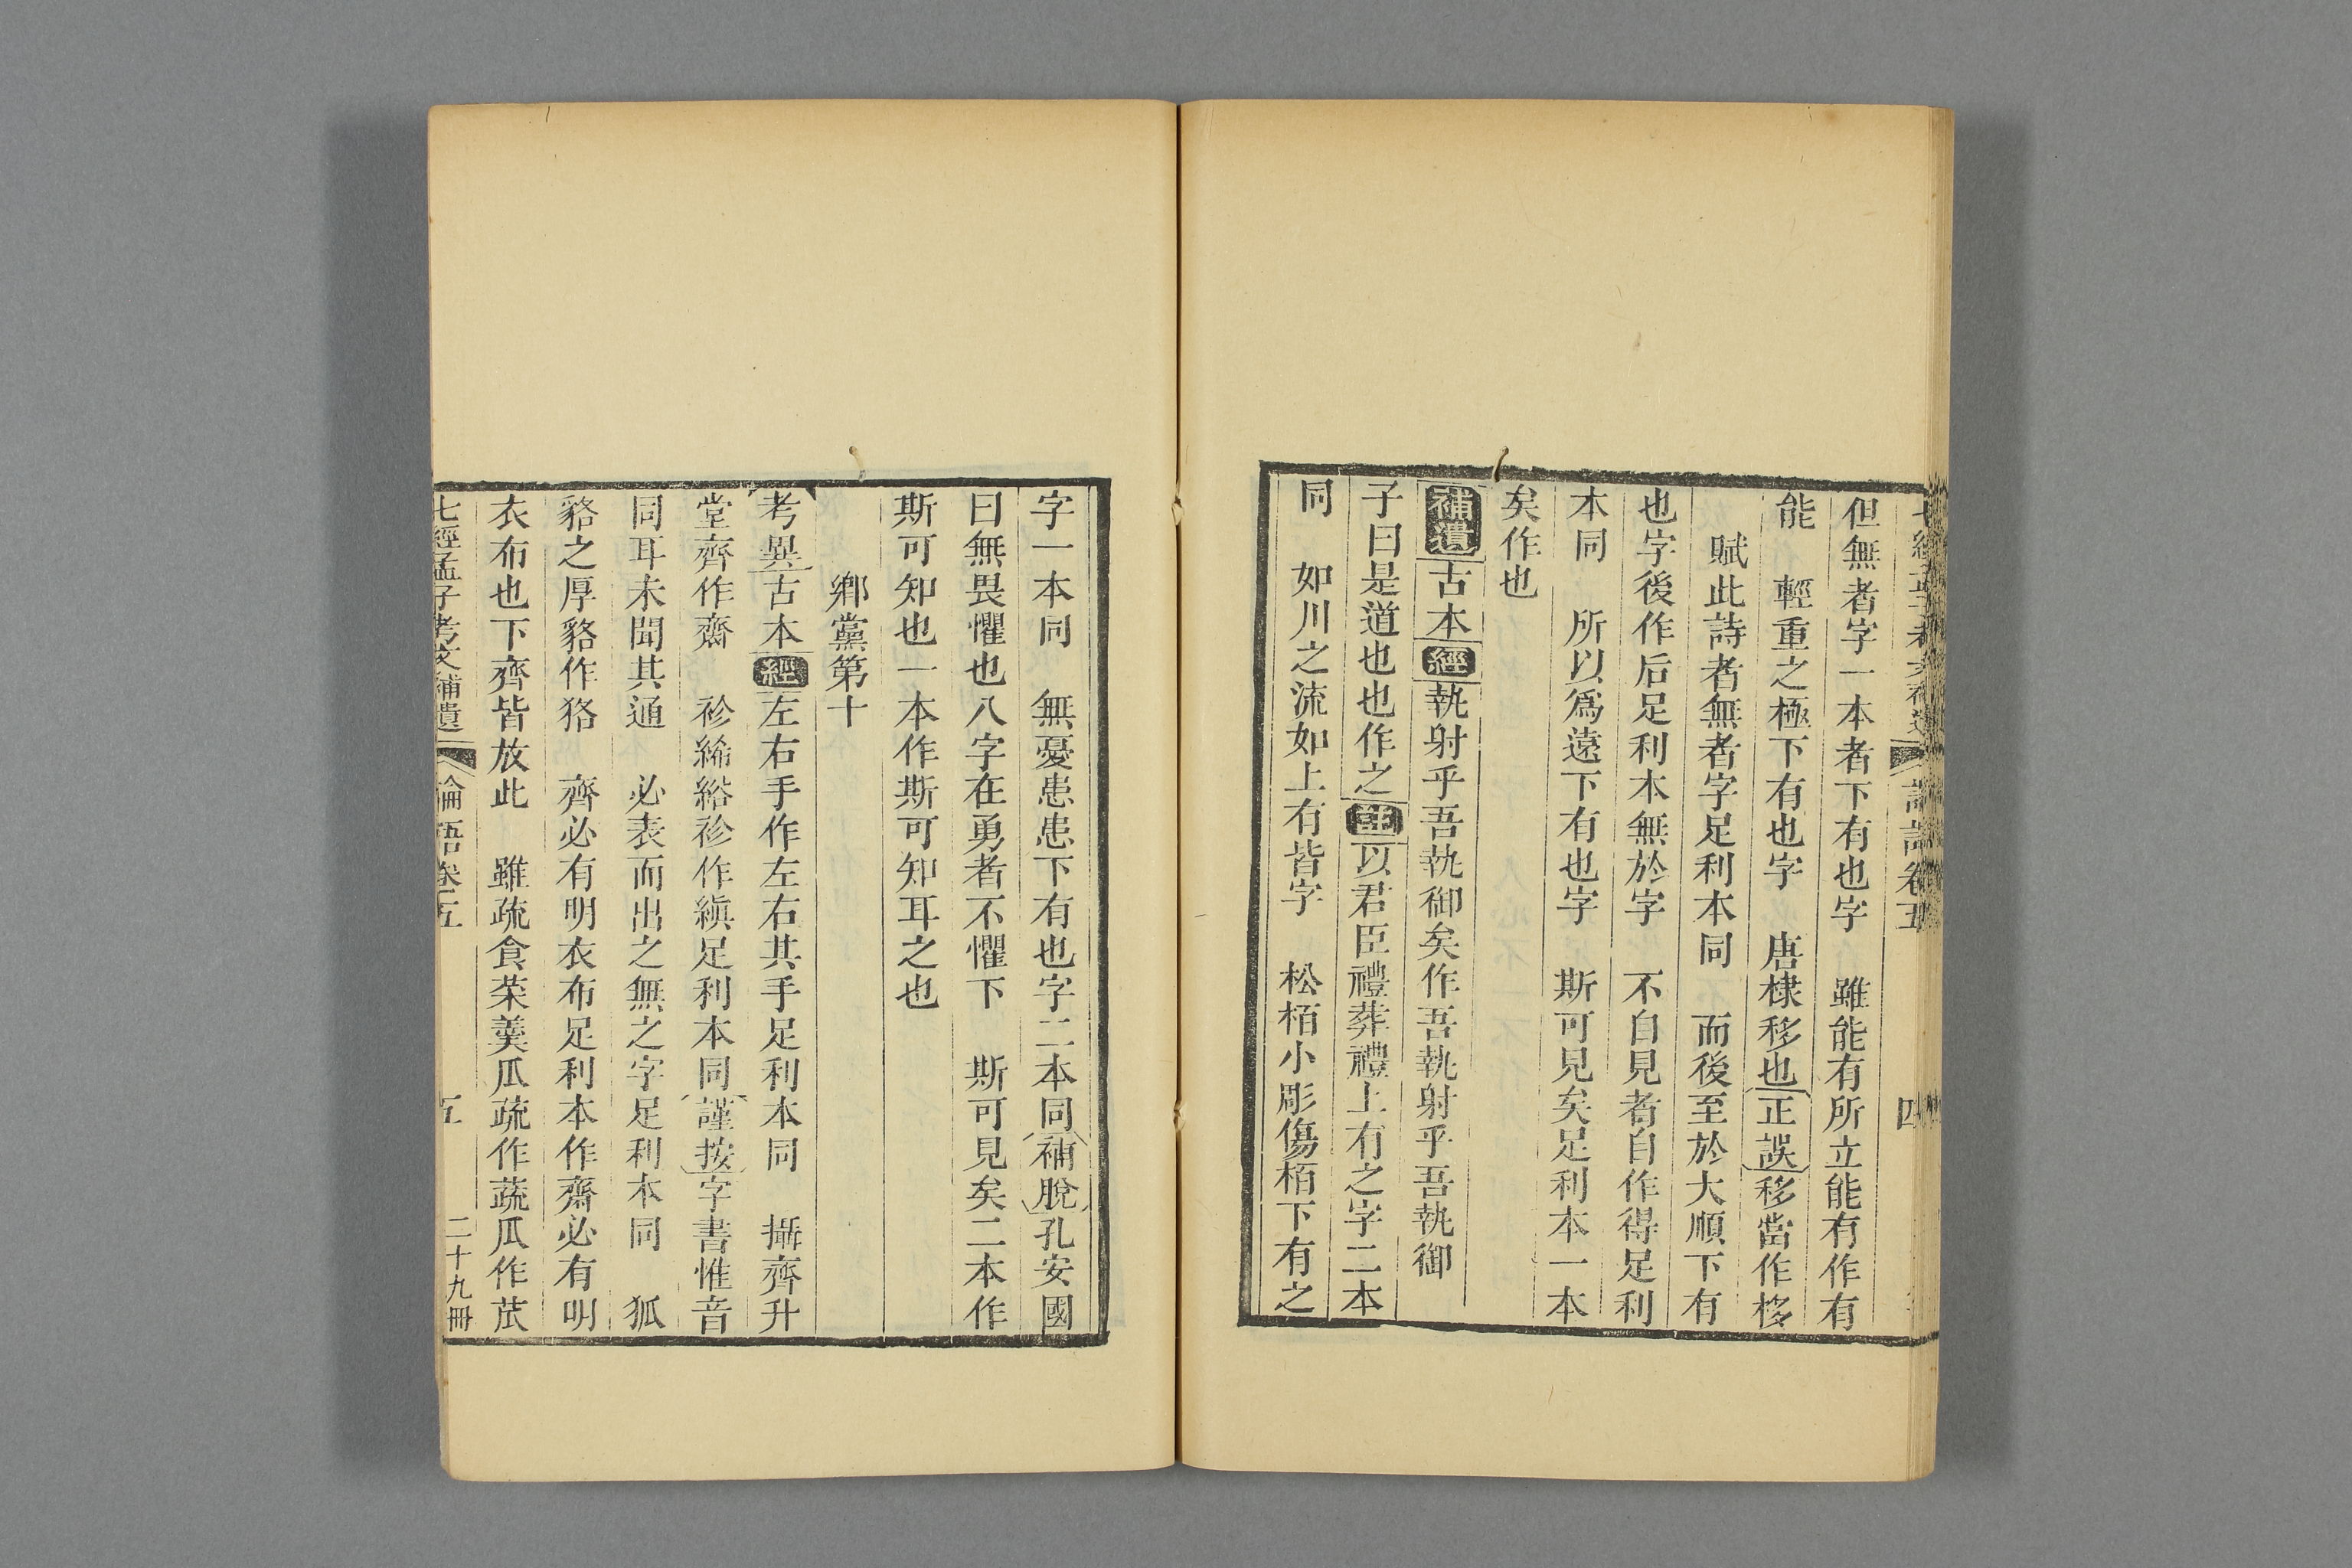 但無者字一本者下有也字　雖能有所立能有作有
能　輕重之極下有也字　唐棣移也正誤移當作栘
賦此詩者無者字足利本同　而後至於大順下有
也字後作后足利木無於字　不自見者自作得足利
本同　所以爲遠下有也字　斯可見矣足利本一本
矣作也
補遺古本經執射乎吾執御矣作吾執射乎吾執御
子曰是道也也作之註以君臣禮葬禮上有之字二本
同　如川之流如上有皆字　松栢小彫傷栢下有之
字一本同　無憂患患下有也字二本同補脫孔安國
曰無畏懼也八字在勇者不懼下　斯可見矣二本作
斯可知也一本作斯可知耳之也
鄉黨第十
考異古本經左右手作左右其手足利本同　攝齊升
堂齊作齋　袗絺綌袗作縝足利本同謹按字書惟音
同耳未聞其通　必表而出之無之字足利本同　狐
貉之厚貉作狢　齊必有明衣布足利本作齋必有明
衣布也下齊皆放此　雖疏食菜羹瓜疏作蔬瓜作苽
七經孟子考文補遺　論語卷五　五　二十九冊